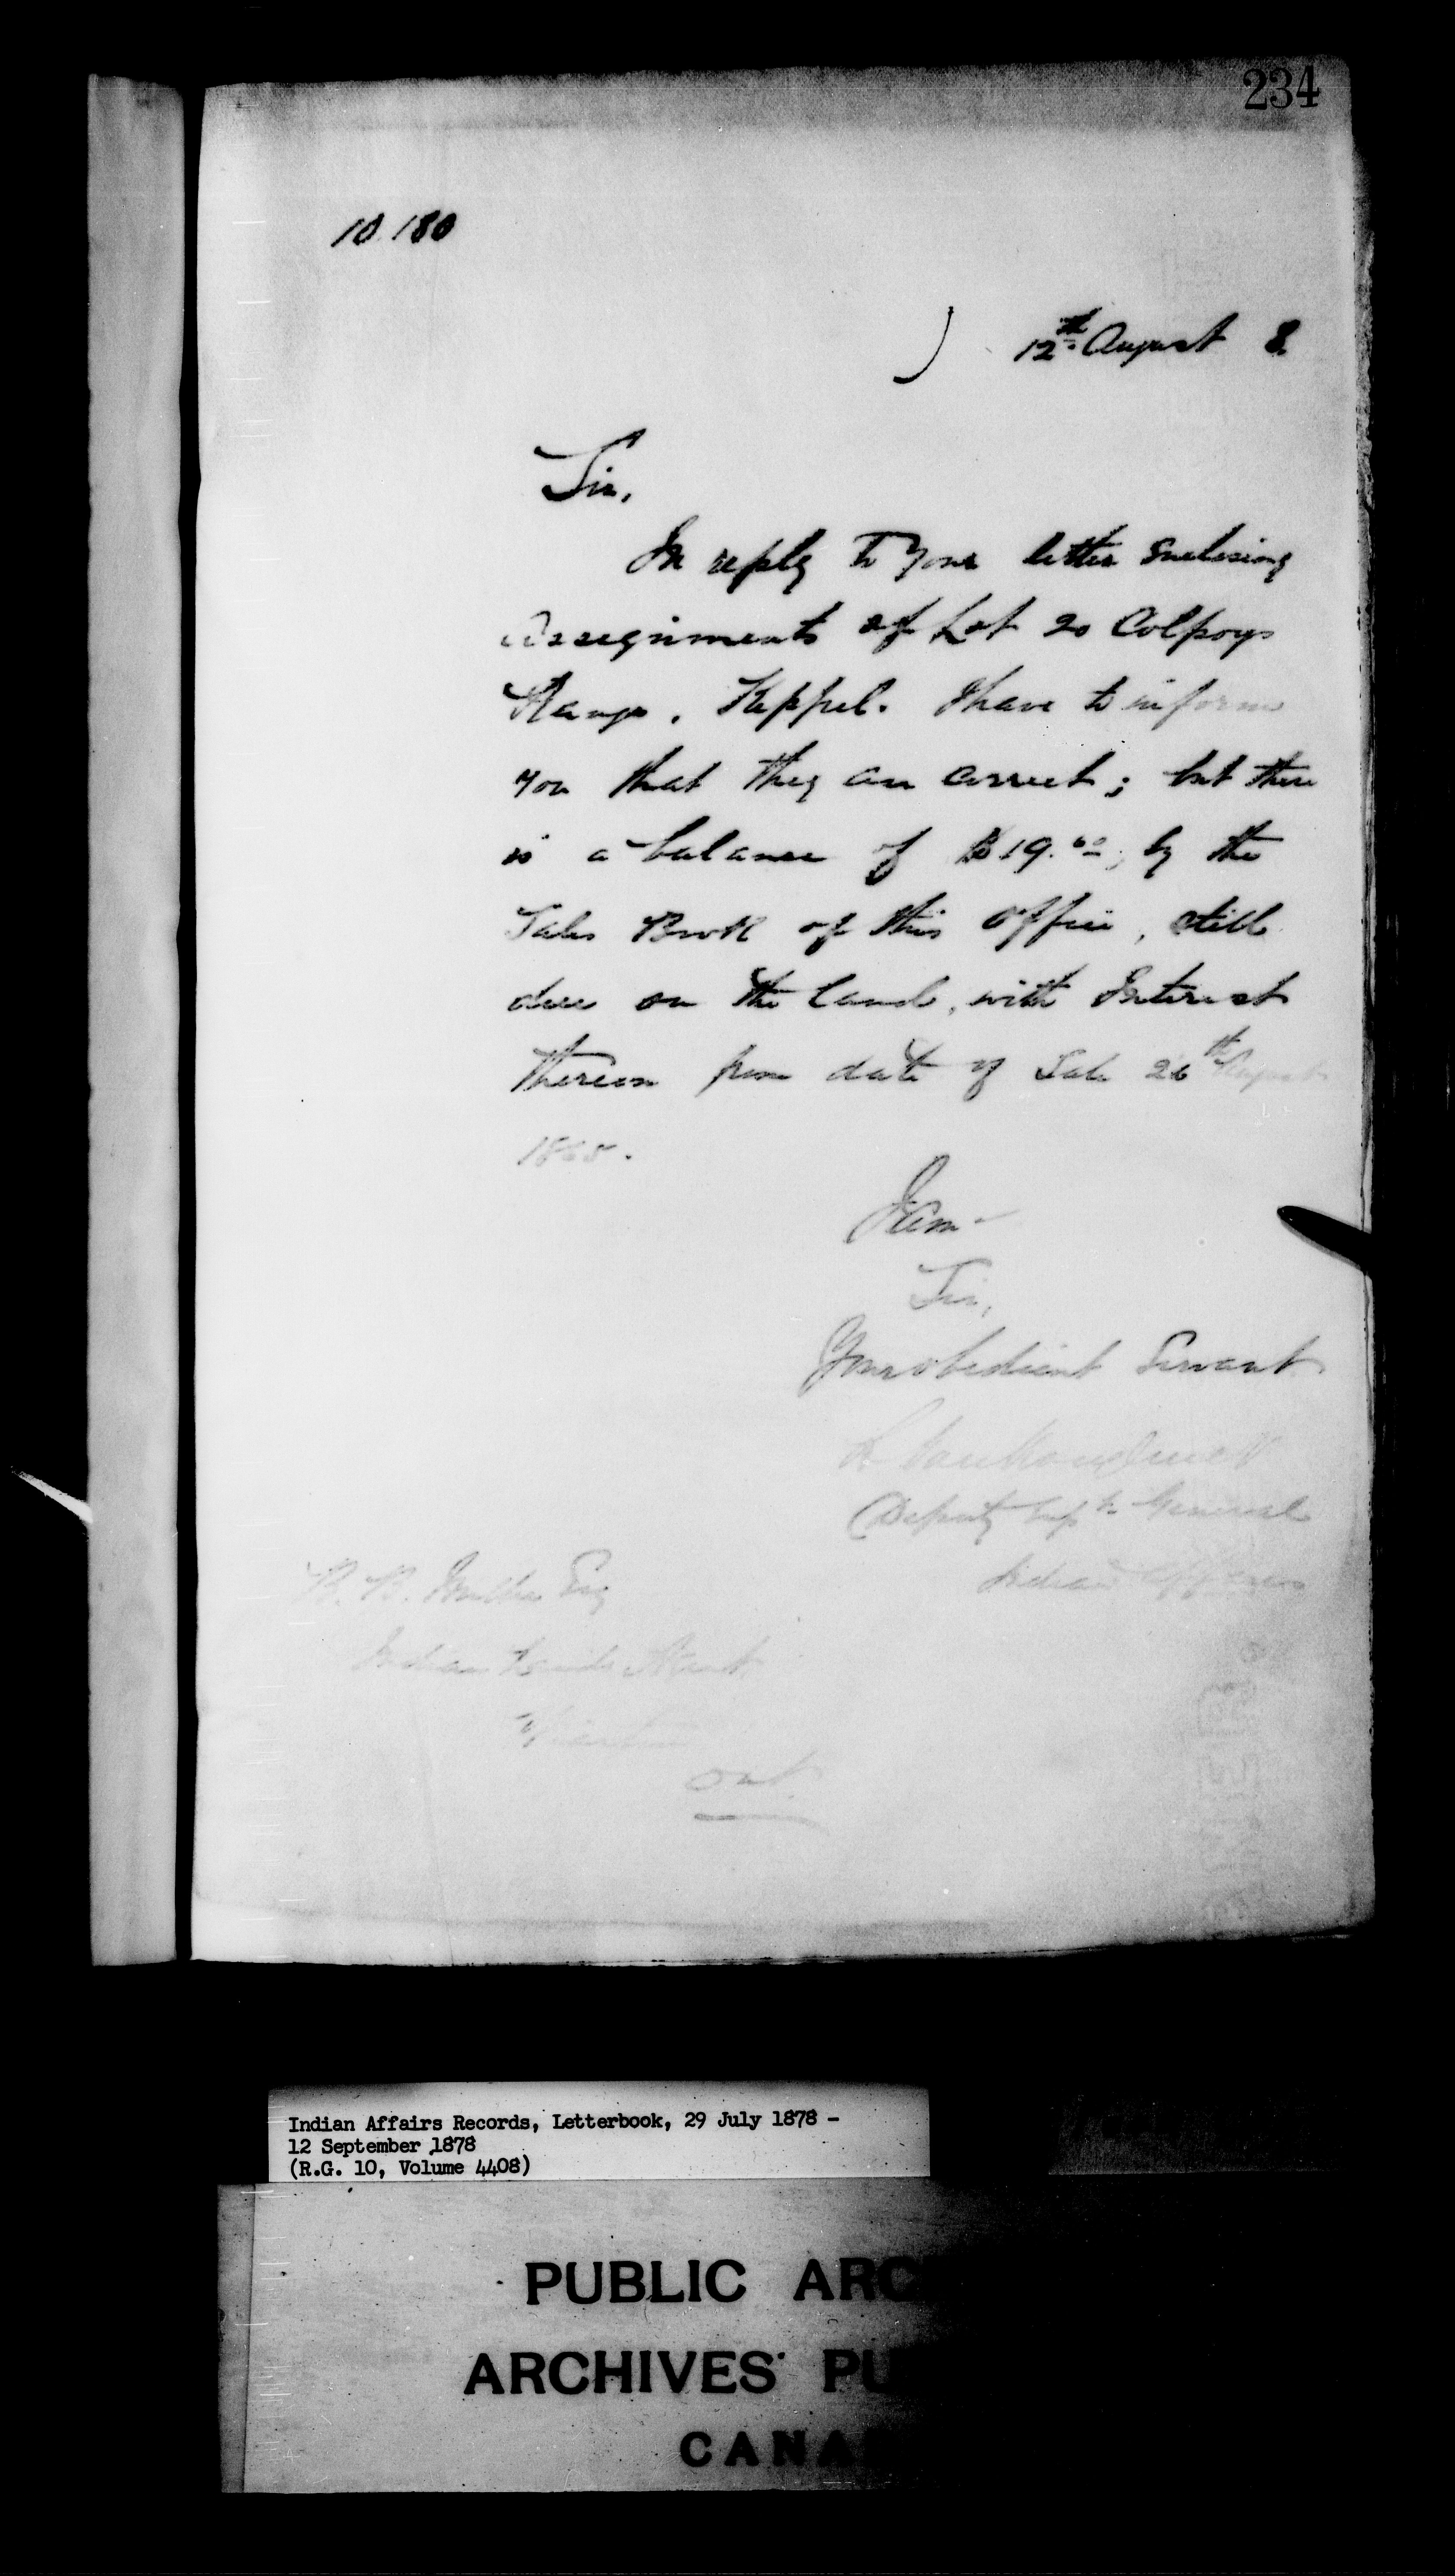 234
10.180
12th August 8
Sir,
In reply to your letter enclosing
Assignments of Lot 20 Colpoys
Range, Keppel. I have to inform
you that they are correct; but there
is a balance of $19.60, by the
Sales Book of this Office, still
due on the land, with Interest
thereon from date of Sale 26th August
1865.
I am
Sir,
Your obedient Servant
L. VanKoughnet
Deputy Supt. General
Indian Affairs
B. B. Miller Esq
Indian Lands Agent
Wiarton
Ont.
Indian Affairs Records, Letterbook, 29 July 1878 -
12 September 1878
(R.G. 10, Volume 4408)
PUBLIC ARC
ARCHIVES PU
CANA